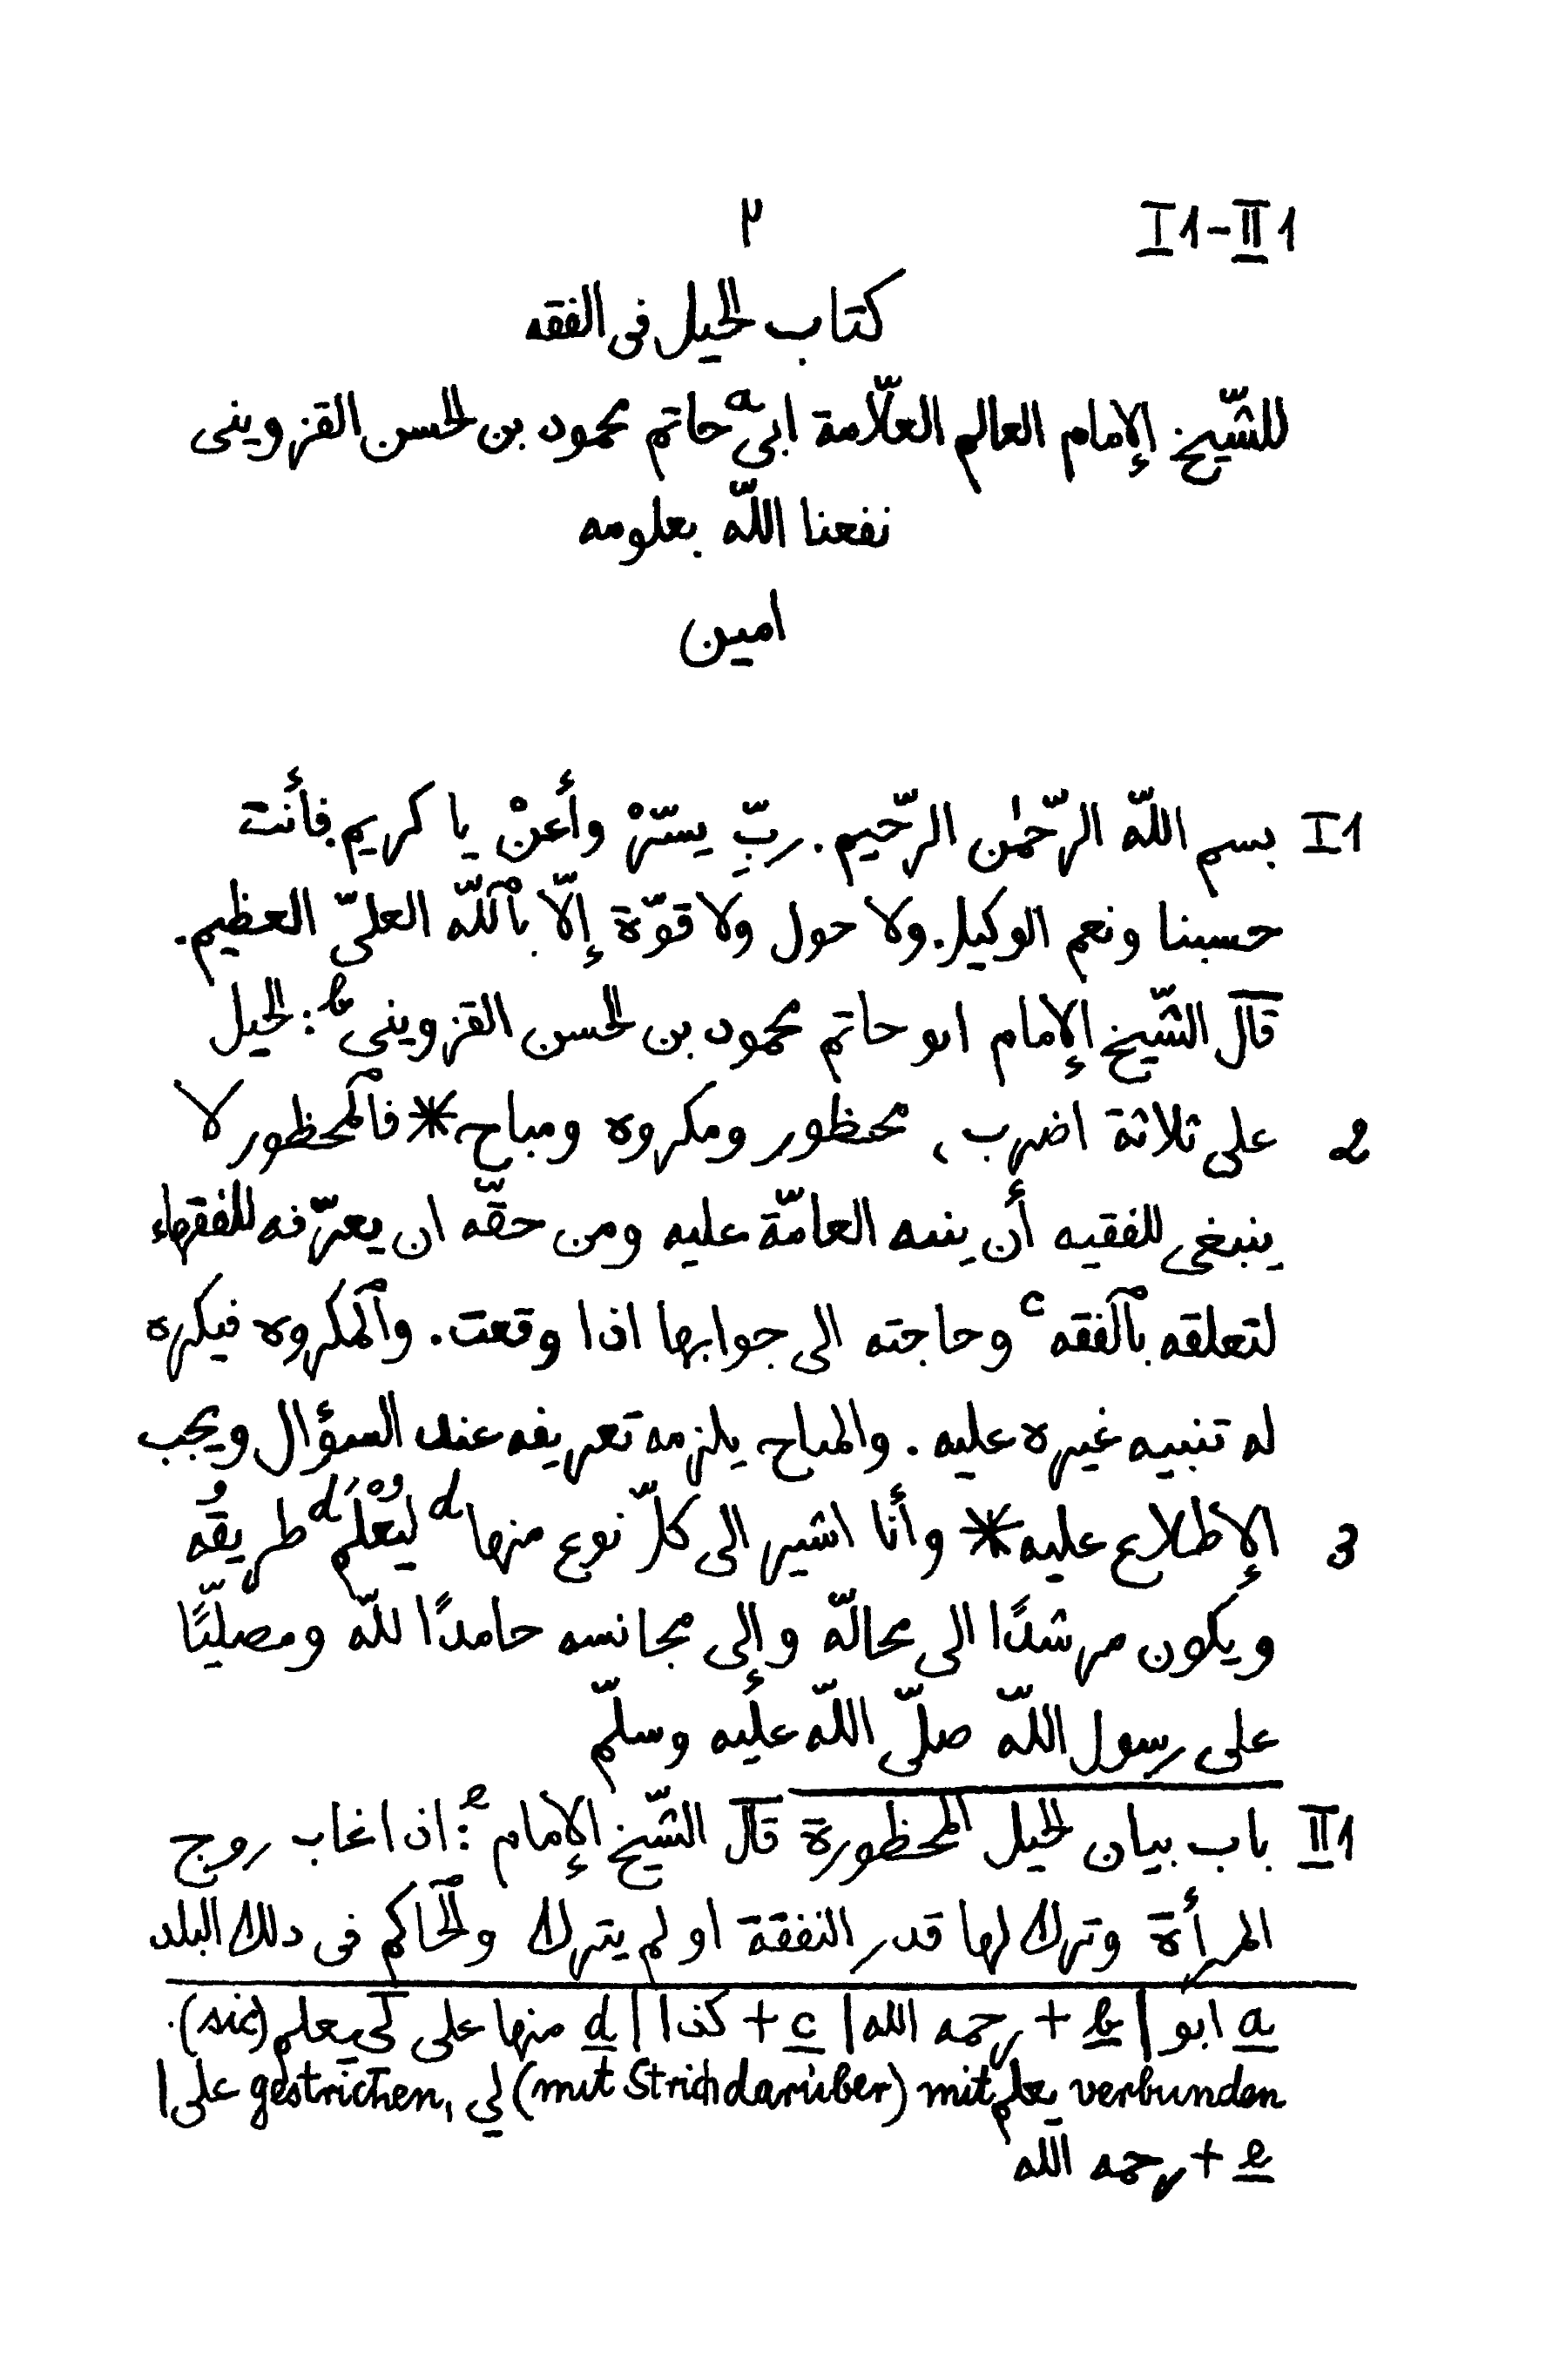 I1-II1 ٢
كتاب الحيل فى الفقه
للشّيخ الإمام العالم العلّامة ابى a حاتم محمود بن الحسن القزوينى
نفعنا اللّه بعلومه
امين
I1 بسم اللّه الرّحمٰن الرّحيم. ربِّ يسّرْ وأعنْ يا كريم. فأنت
حسبنا ونعم الوكيل. ولا حول ولا قوّة إلّا بٱللّه العلىّ العظيم.
قال الشّيخ الإمام ابو حاتم محمود بن الحسن القزوينى b: الحيل
2 على ثلاثة اضرب، محظور ومكروه ومباح * فٱلمحظور لا
ينبغى للفقيه أن ينبه العامّة عليه ومن حقّه ان يعرّفه للفقهاء
لتعلقه بٱلفقه c وحاجته الى جوابها اذا وقعت. وٱلمكروه فيكره
له تنبيه غيره عليه. والمباح يلزمه تعريفه عند السؤال ويجب
3 الإطلاع عليه * وأنا اشير الى كلّ نوع منها d ليُعْلَمَ d طريقُه
ويكون مرشدًا الى محالّه وإلى مجانسه حامدًا للّه ومصلّيًا
على رسول اللّه صلّى اللّه عليه وسلّم
II1 باب بيان الحيل المحظورة قال الشّيخ الإمام e: اذا غاب زوج
المرأة وترك لها قدر النفقة او لم يترك وٱلحاكم فى ذلك البلد
a ابو | b + رحمه الله | c + كذا | d منها على لى يعلم (sic).
على | gestrichen, لي (mit Strich darüber) mit يعلم verbunden
e + رحمه الله